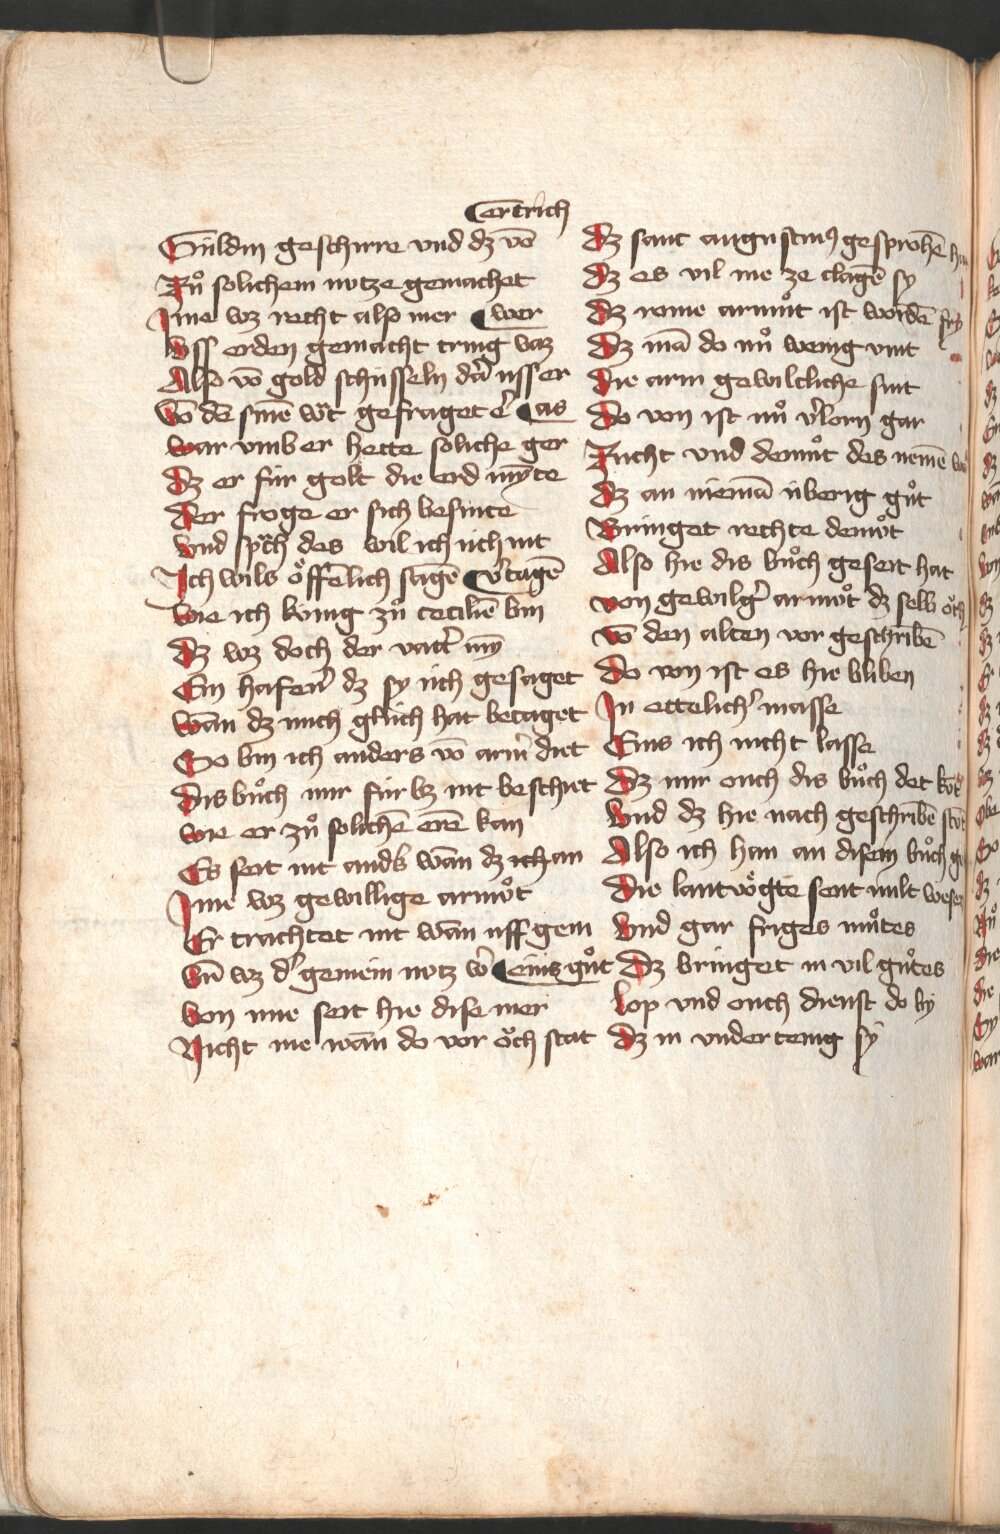 ertrich
Guͤldin geschirre vnd dz vō
Zuͦ solichem nutze gemachet
Jme wz recht also mer wer
Uss erden gemacht tring vaz
Also vō gold schüsseln dar̄ usser
Vō dē sinē wͤt gefraget er̄ as
war vmb er hette soliche ger
Dz er für golt die erd mÿte
Der froge er sich besinte
Vnd spͣch des wil ich üch nit
Jch wils oͤffēlich sagē v̄tagē
wie ich kúnig zuͦ ceciliē bin
Dz wz doch der vatt̄ mÿ
Ein hafen̄ dz sy üch gesaget
wān dz mich glüch hat betaget
So bin ich anders vō arm̄ diet
Dis buͦch mir für bz nit beschiet
wie er zuͦ solichē erē kan
Es seit nit and͛s wān dz ich an
Jme wz gewillige armuͦt
Er trachtet nit wān uff gem
Vn̄ wz d͛ gemein notz v͛ einꝫ guͦt
Von ime seit hie dise mer
Nicht me wān do vor oͮch stat
Dz sant augustinꝰ gesprochē
Dz es vil me ze clagē sy
Dz rome armuͦt ist wordē fry
Dz mā do nuͦ wenig vint
Die arm gewilcliche sint
Do von ist nuͦ v͛lorn gar
Zucht vnd demuͦt des nemē
Dz an niemā überig guͦt
Bringet rechte demuͦt
Also hie dis buͦch geseit hat
von gewilg͛ armuͦt dz selb oͮch
vō den alten vor geschribē
Do von ist es hie bliben
Jn ettelich͛ masse
Eins ich nicht lasse
Dz mir ouch dis buͦch det
Vnd dz hie nach geschribē
Also ich han an disem buͦch
Die lantvoͤgte sent milt wesen
Vnd gar friges muͦtes
Dz bringet in vil guͦtes
Lop vnd ouch dienst do by
Dz in vndertenig sy